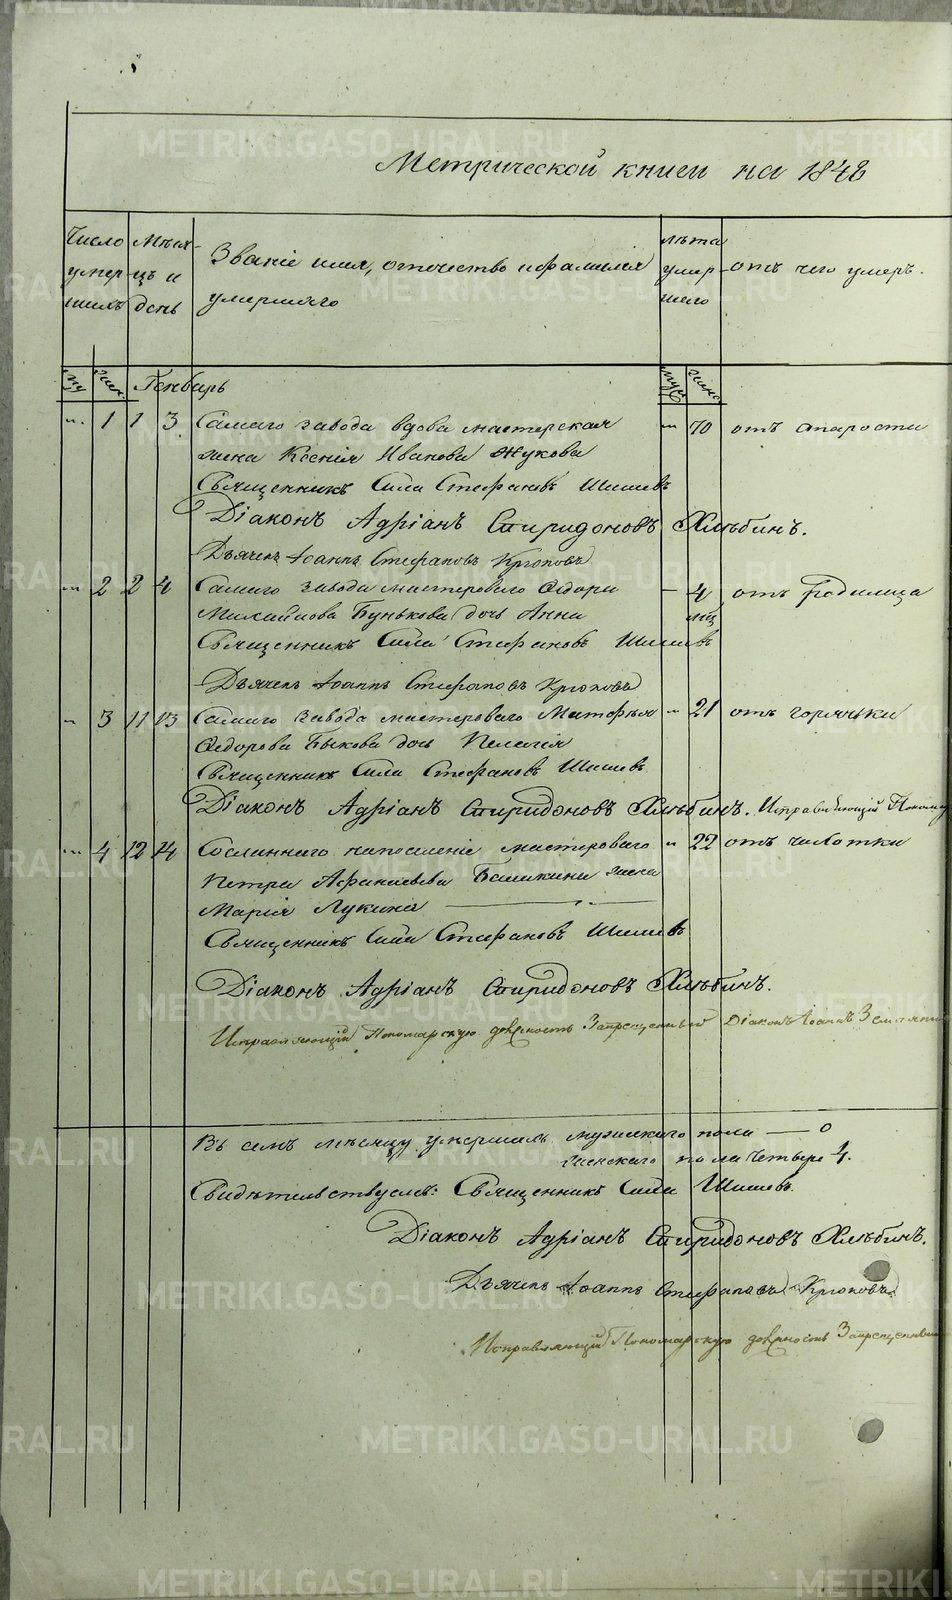 Метрической книги на 1848
Число умер шихъ
Мѣся- цъ и день
Званіе имя, отечество и фамилія умершаго
лѣта умер шаго
отъ чего умеръ.
му жен Генварь муж жен
" 1 1 3 Самаго завода вдова мастерская " 70 отъ старости
жена Ксенія Иванова Жукова
Священникъ Сила Стефановъ Шишевъ
Діаконъ Адріанъ Спиридоновъ Хлѣбинъ.
Дьячекъ Іоаннъ Стефановъ Крюковъ
" 2 2 4 Самаго завода мастероваго Ѳедора — 4 отъ родимца
Михайлова Бунькова дочь Анна мѣц
Священникъ Сила Стефановъ Шишевъ
Дьячекъ Іоаннъ Стефановъ Крюковъ
" 3 11 13 Самаго завода мастероваго Матфея " 21 отъ горячьки
Ѳедорова Быкова дочь Пелагія
Священникъ Сила Стефановъ Шишевъ
Діаконъ Адріанъ Спиридоновъ Хлѣбинъ. Исправляющій Поном
" 4 12 14 Сосланнаго на поселеніе мастероваго " 22 отъ чахотки
Петра Афанасьева Башкина жена
Марія Лукина
Священникъ Сила Стефановъ Шишевъ
Діаконъ Адріанъ Спиридоновъ Хлѣбинъ.
Исправляющій Пономарскую должность Запрещенный Діаконъ Іоаннъ
Въ семъ мѣсяцѣ умершихъ мужескаго пола — 0
женскаго пола четыре 4.
Свидѣтельствуемъ: Священникъ Сила Шишевъ.
Діаконъ Адріанъ Спиридоновъ Хлѣбинъ.
Дьячекъ Іоаннъ Стефановъ Крюковъ
Исправляющій Пономарскую должность Запрещенный
METRIKI.GASO-URAL.RU